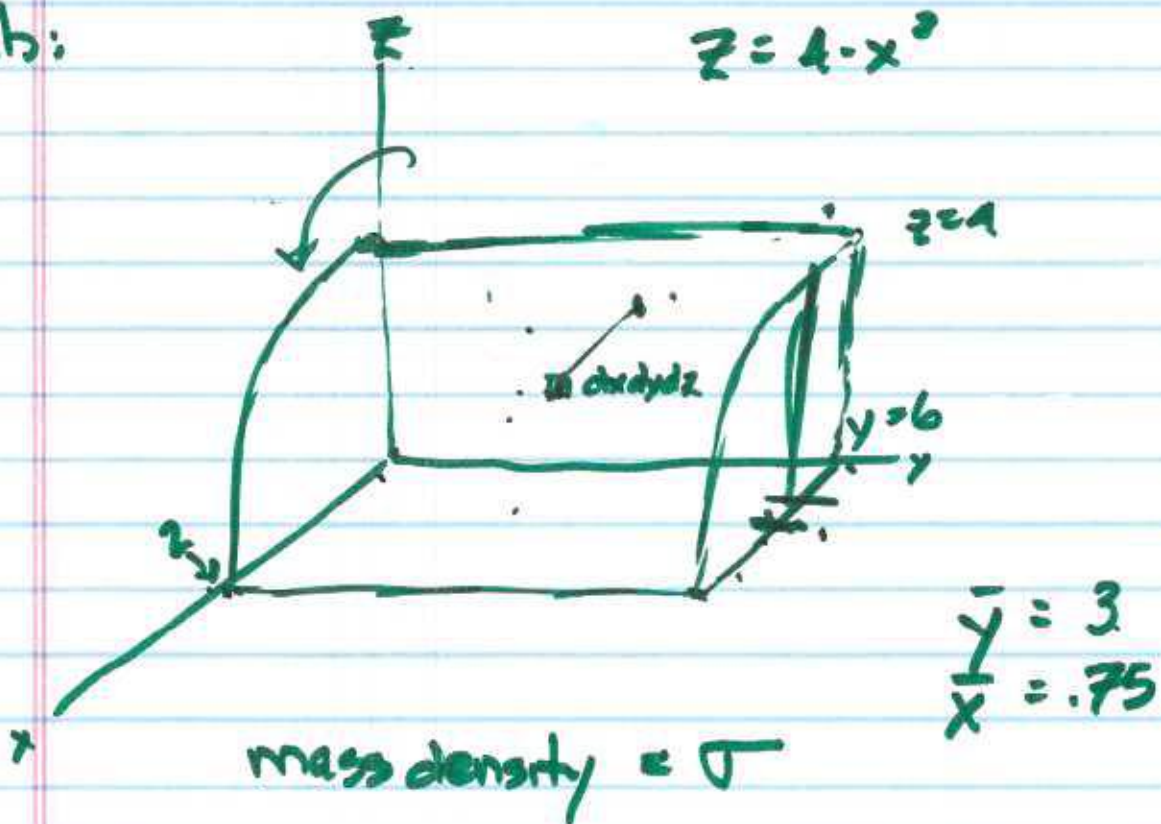 b:
z
z = 4 - x²
z=4
dxdydz
y=6
y
2
ȳ = 3
x̄ = .75
x
mass density = σ